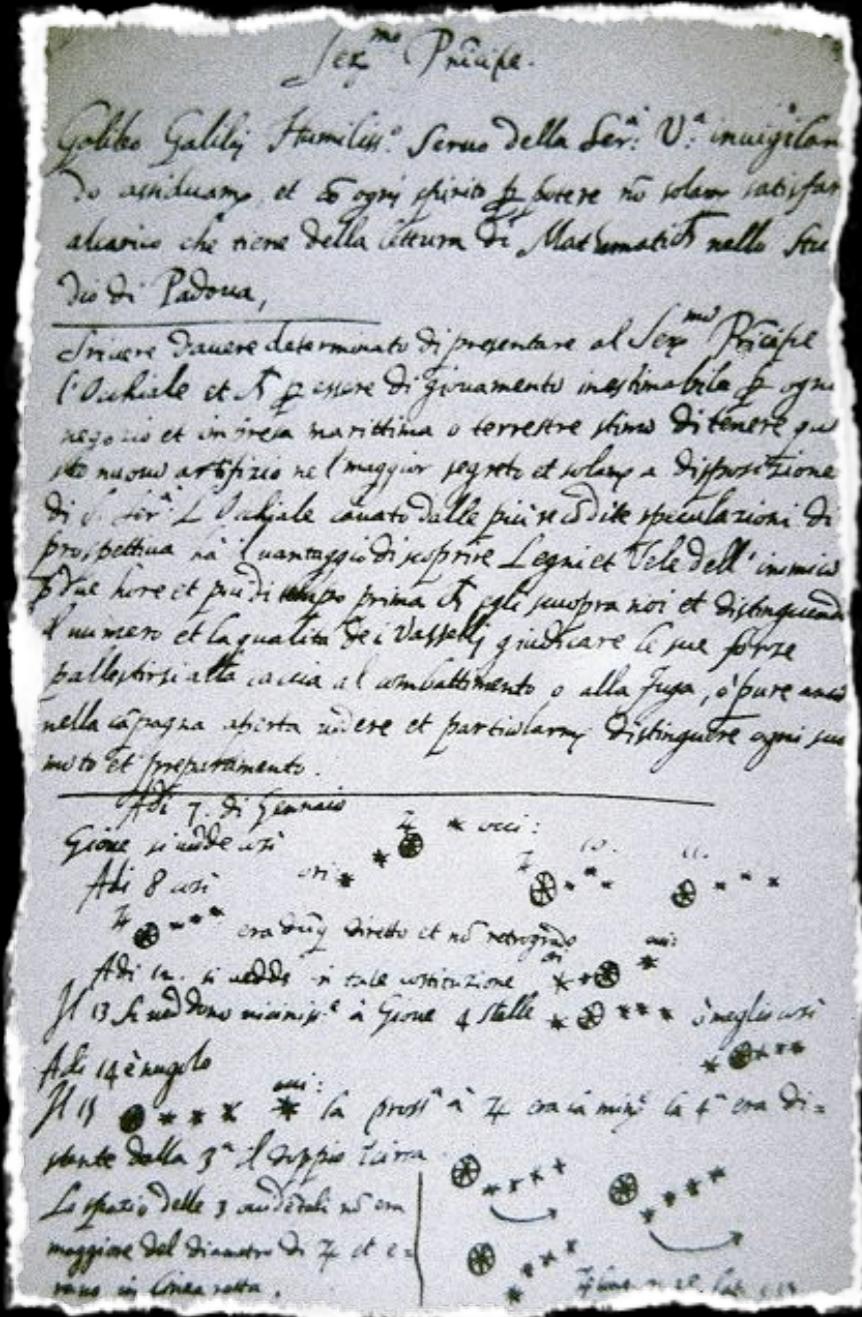 Ser.mo Principe.
Galileo Galilej Humiliss.o Servo della Ser.a V.a invigilan
do assiduam.te et cō ogni spirito p potere nō solam.te satisfar
alcarico che tiene della lettura di Mathematich nello Stu
dio di Padova,
Scrivere davere determinato di presentare al Ser.mo Prīcipe
l'Ochiale et p essere di giovamento inestimabile p ogni
negozio et impresa marittima o terrestre stimo di tenere que
sto nuovo artifizio nel maggior segreto et solam.te a disposizione
di S. Ser.a L'Ochiale cavato dalle più recōdite speculazioni di
prospettiva hà il vantaggio di scoprire Legni et Vele dell'inimico
p due hore et più di tempo prima ch egli scuopra noi et distinguendo
il numero et la qualita dei Vasselli giudicare le sue forze
pallestirsi alla caccia al combattimento o alla fuga, ò pure anco
nella cāpagna aperta vedere et particolarm.te distinguere ogni suo
moto et preparamento.
Adi 7. di Gennaio
Giove si vede così * * occi:
Adi 8 così ori * 10. 11.
* * * era dūq diretto et nō retrogrado
Adi 12. si vedde in tale costituzione * * *
Il 13 si veddono vicinisse à Giove 4 stelle * * * * ò meglio così
Adi 14 è nugolo * * * *
Il 15 * * * * occi: la pross.a à ♃ era la min.e la 4.a era di=
stante dalla 3.a il doppio circa
Lo spazio delle 3 occidētali nō era
maggiore del diametro di ♃ et e=
rano in linea retta.